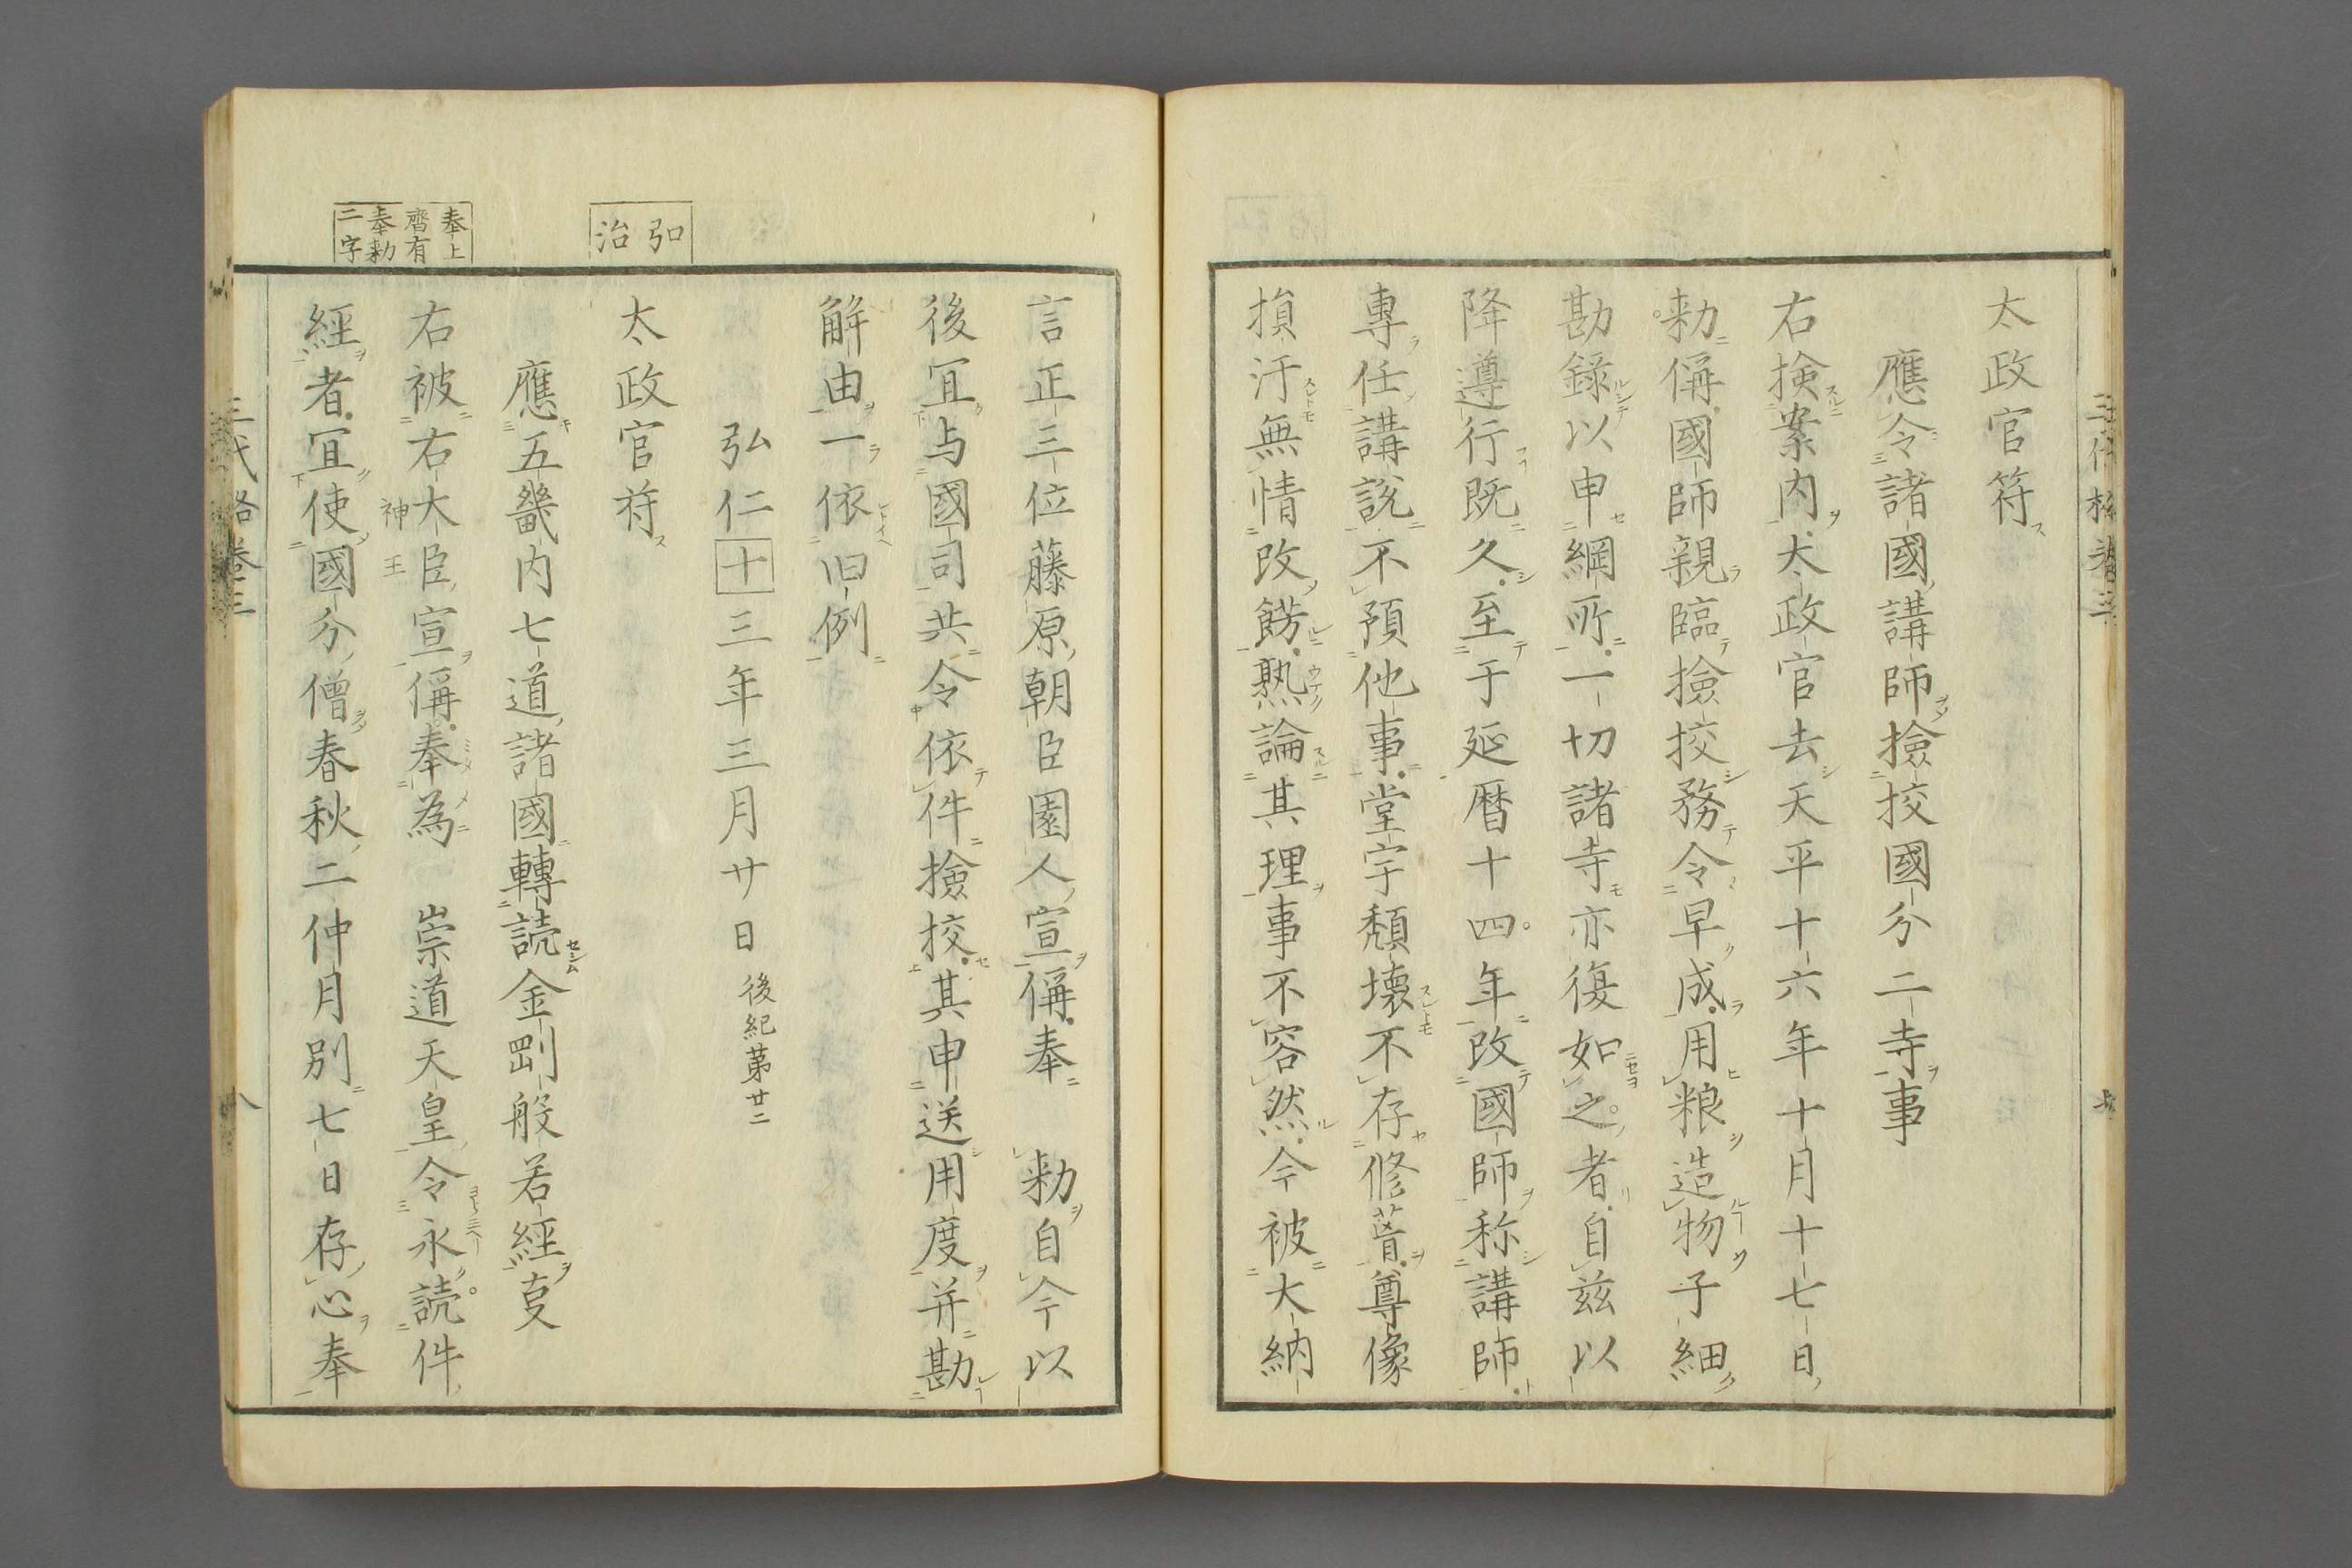 太政官符
應令諸國講師撿挍國分二寺事
右撿案内太政官去天平十六年十月十七日
勅偁國師親臨撿挍務令早成用粮造物子細
勘錄以申綱所一切諸寺亦復如之者自兹以
降遵行既久至于延暦十四年改國師称講師
專任講說不預他事堂宇頽壊不存修葺尊像
損汙無情改餝熟論其理事不容然今被大納
言正三位藤原朝臣園人宣偁奉　勅自今以
後冝与國司共令依件撿挍其申送用度并勘
解由一依旧例
弘仁十三年三月廿日後紀第廿二
弘治
太政官符
應五畿内七道諸國轉読金剛般若經㕝
奉上齊有奉勅二字
右被右大臣宣偁奉為　崇道天皇令永読件
神王
經者冝使國分僧春秋二仲月別七日存心奉
三代格巻三
八